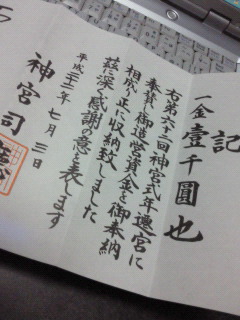 記
一金壹千圓也
右第六十二回神宮式年遷宮に
奉賛し御造営資金を御奉納
相成り正に収納致しました
茲に深く感謝の意を表します
平成二十二年七月三日
神宮司